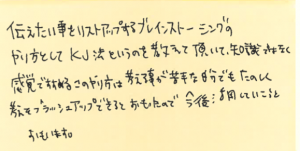 伝えたい事をリストアップするブレインストーミングの
やり方としてKJ法というのを教えて頂いて、知識ではなく
感覚で でこのやり方は 教 が苦手な自分でもたのしく
考えをブラッシュアップできると おもったので 今後 用していこうと
おもいます。